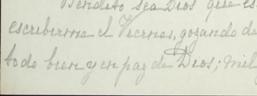 Bendito sea Dios que es
escribirme el Viernes, gozando de
todo bien y en paz de Dios; mil